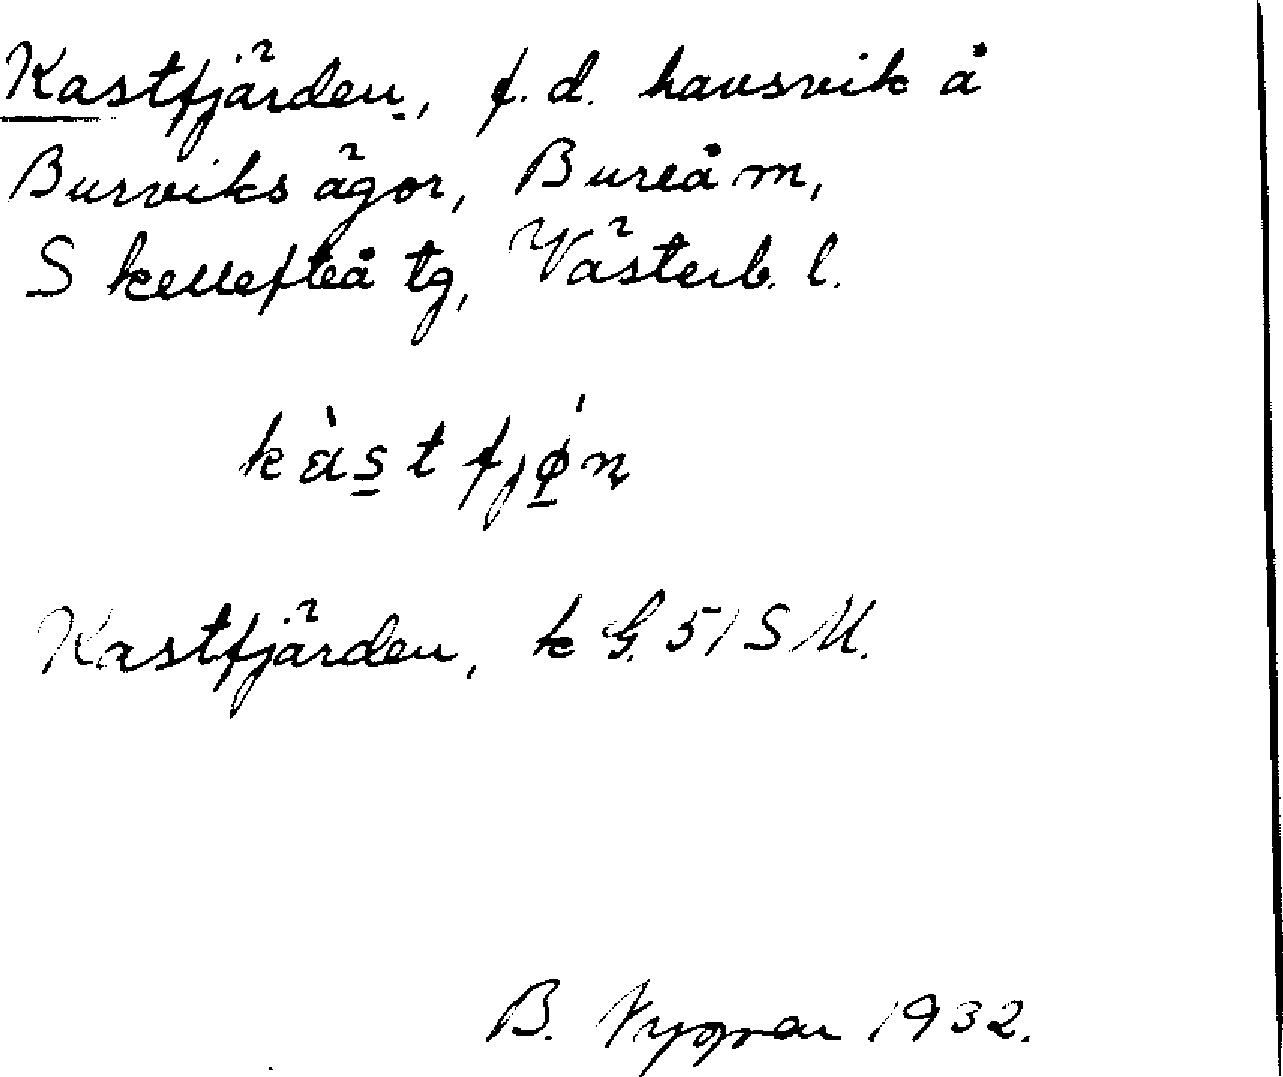 Kastfjärden, f.d. havsvik å
Burviks ägor, Bureå m,
Skellefteå tg, Västerb. l.
kàstfjǿn
Kastfjärden, k G. 51 S M.
B. Nygren 1932.